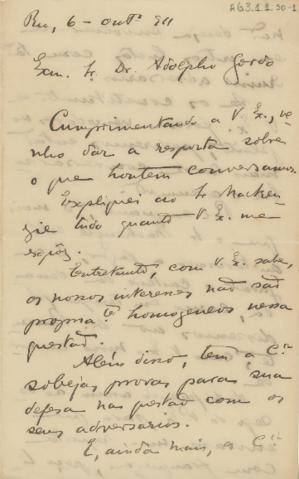 AG3.1.1.30-1
Rio, 6 - out.º 911
Exm. Sr. Dr. Adolpho Gordo
Cumprimentando a V. Ex., ve,
nho dar a resposta sobre
o que hontem conversamos.
Expliquei ao Sr Macken,
zie tudo quanto V. Ex. me
expôz.
Entretanto, como V. Ex. sabe,
os nossos interesses não são
propria.te homogeneos, nessa
questão.
Além disso, tem a C.ia
sobejas provas para sua
defesa na questão com os
seus adversarios.
E, ainda mais, a C.ia